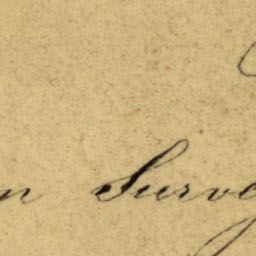 n Surve